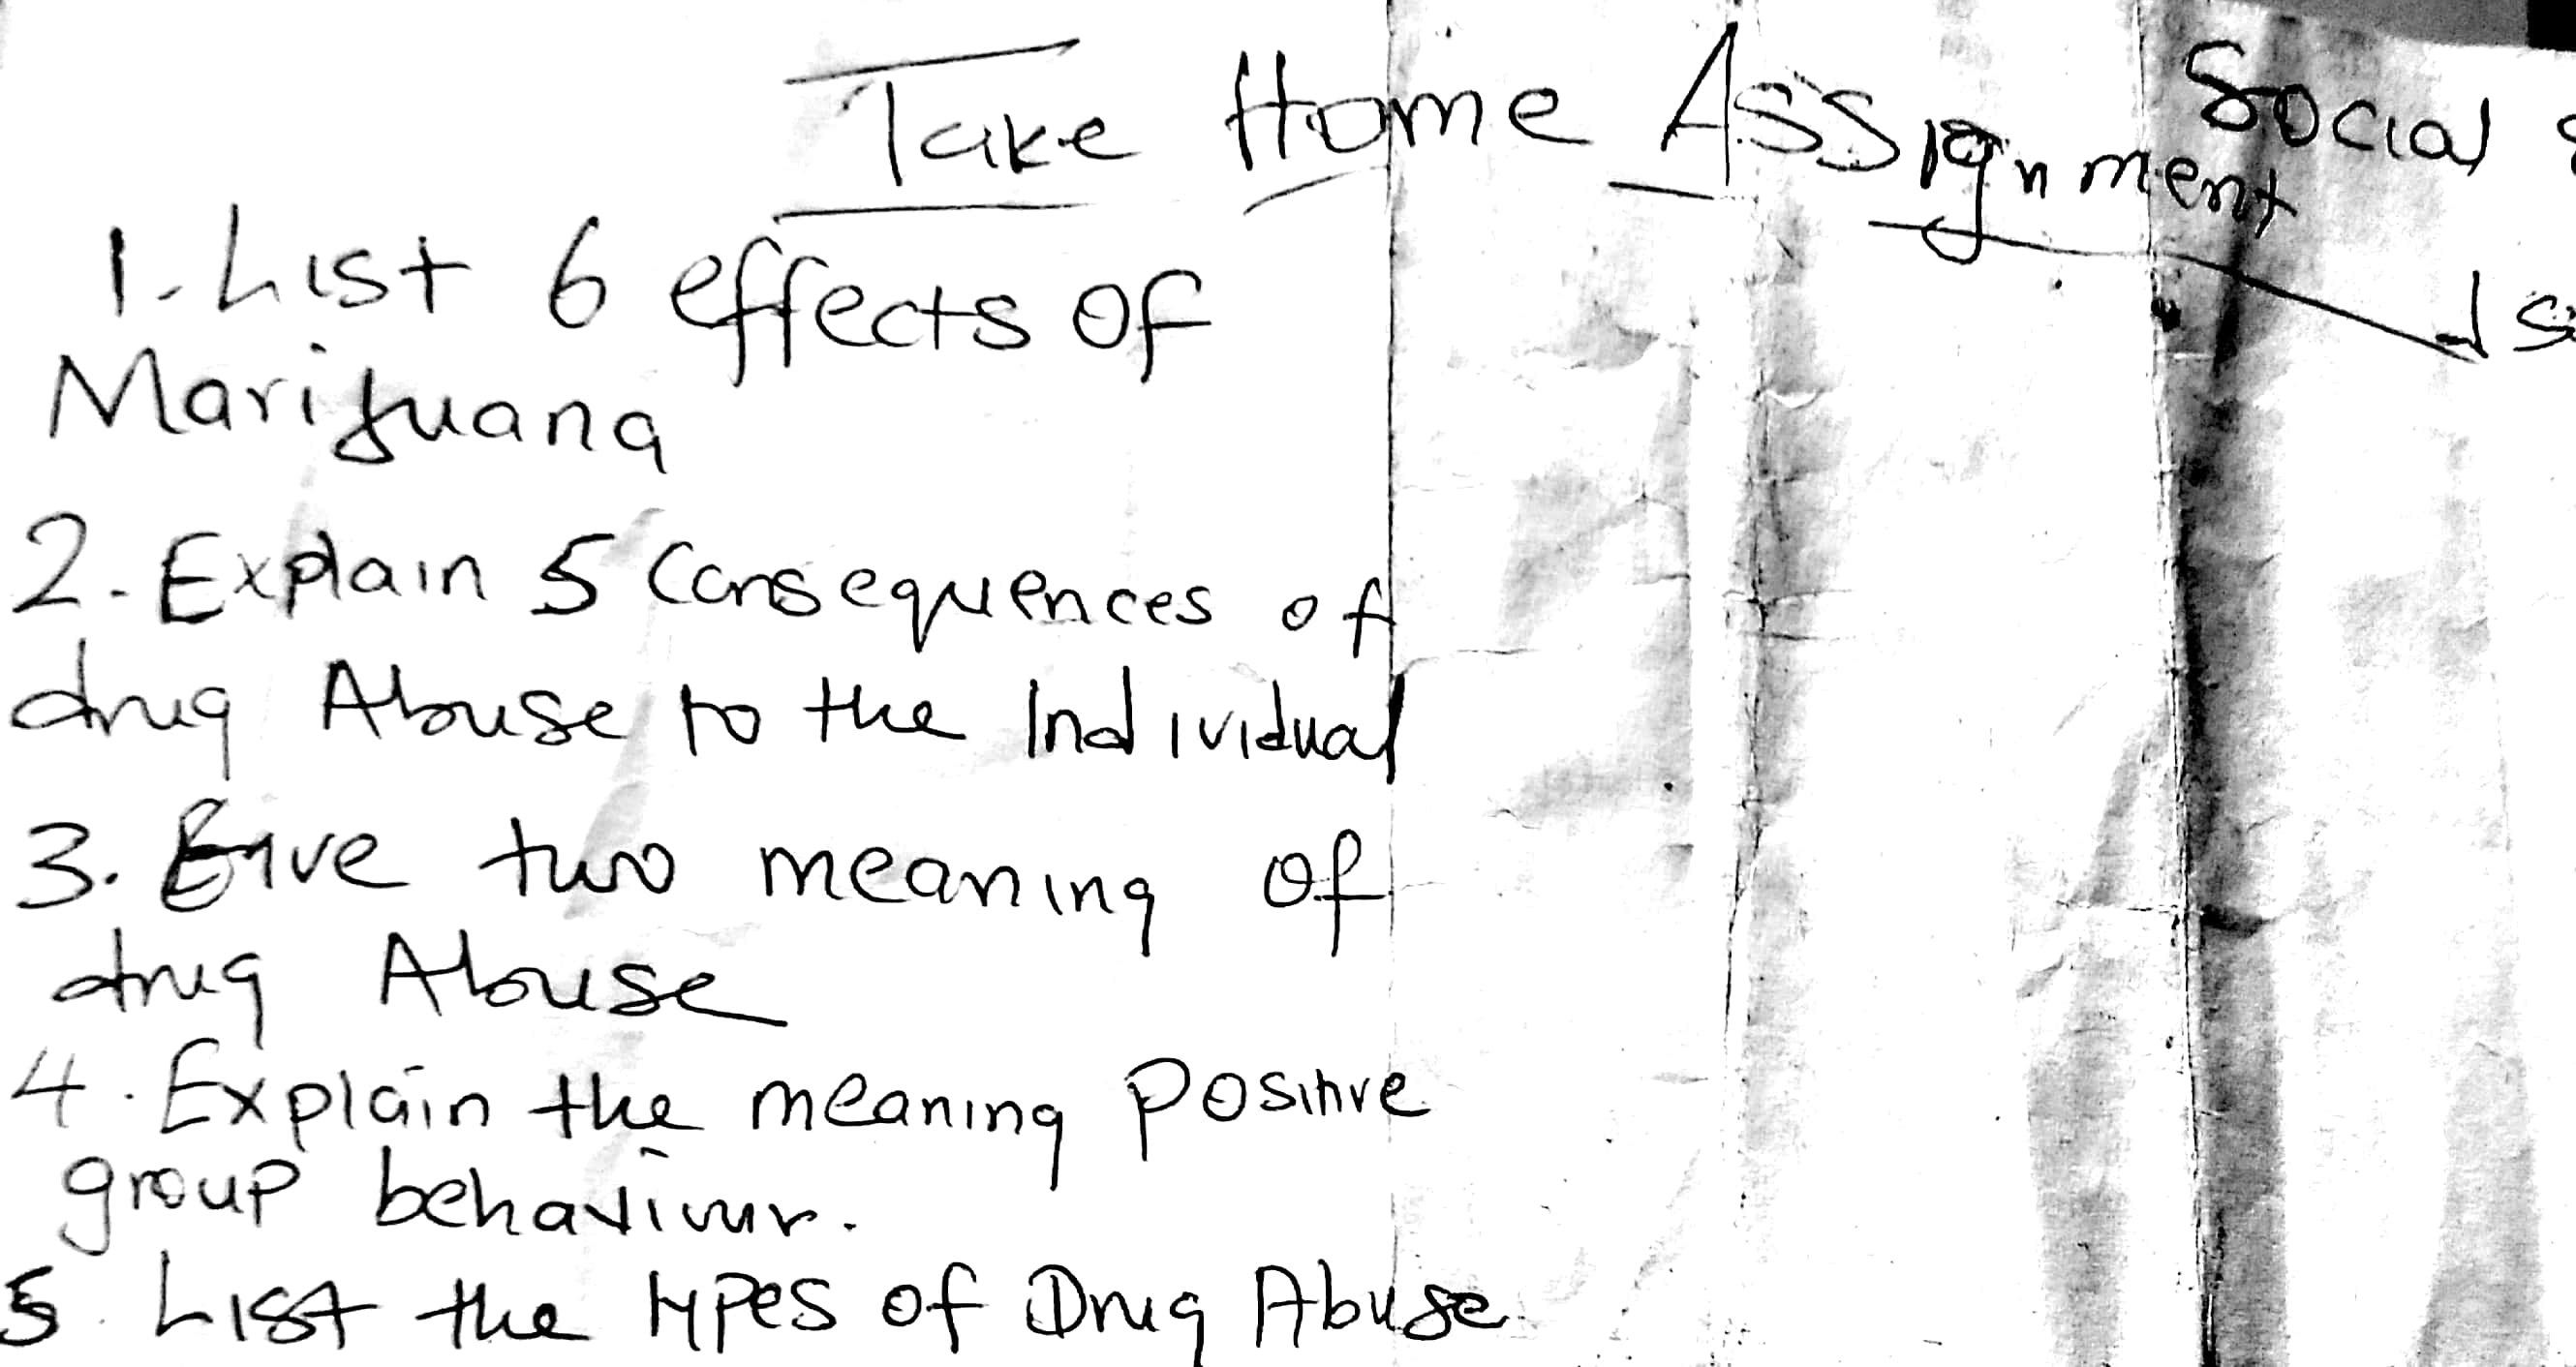 Take Home Assignment
Social
1. List 6 effects of
Marijuana
2. Explain 5 Consequences of
drug Abuse to the Individual
3. Give two meaning of
drug Abuse
4. Explain the meaning positive
group behaviour.
5. List the types of Drug Abuse